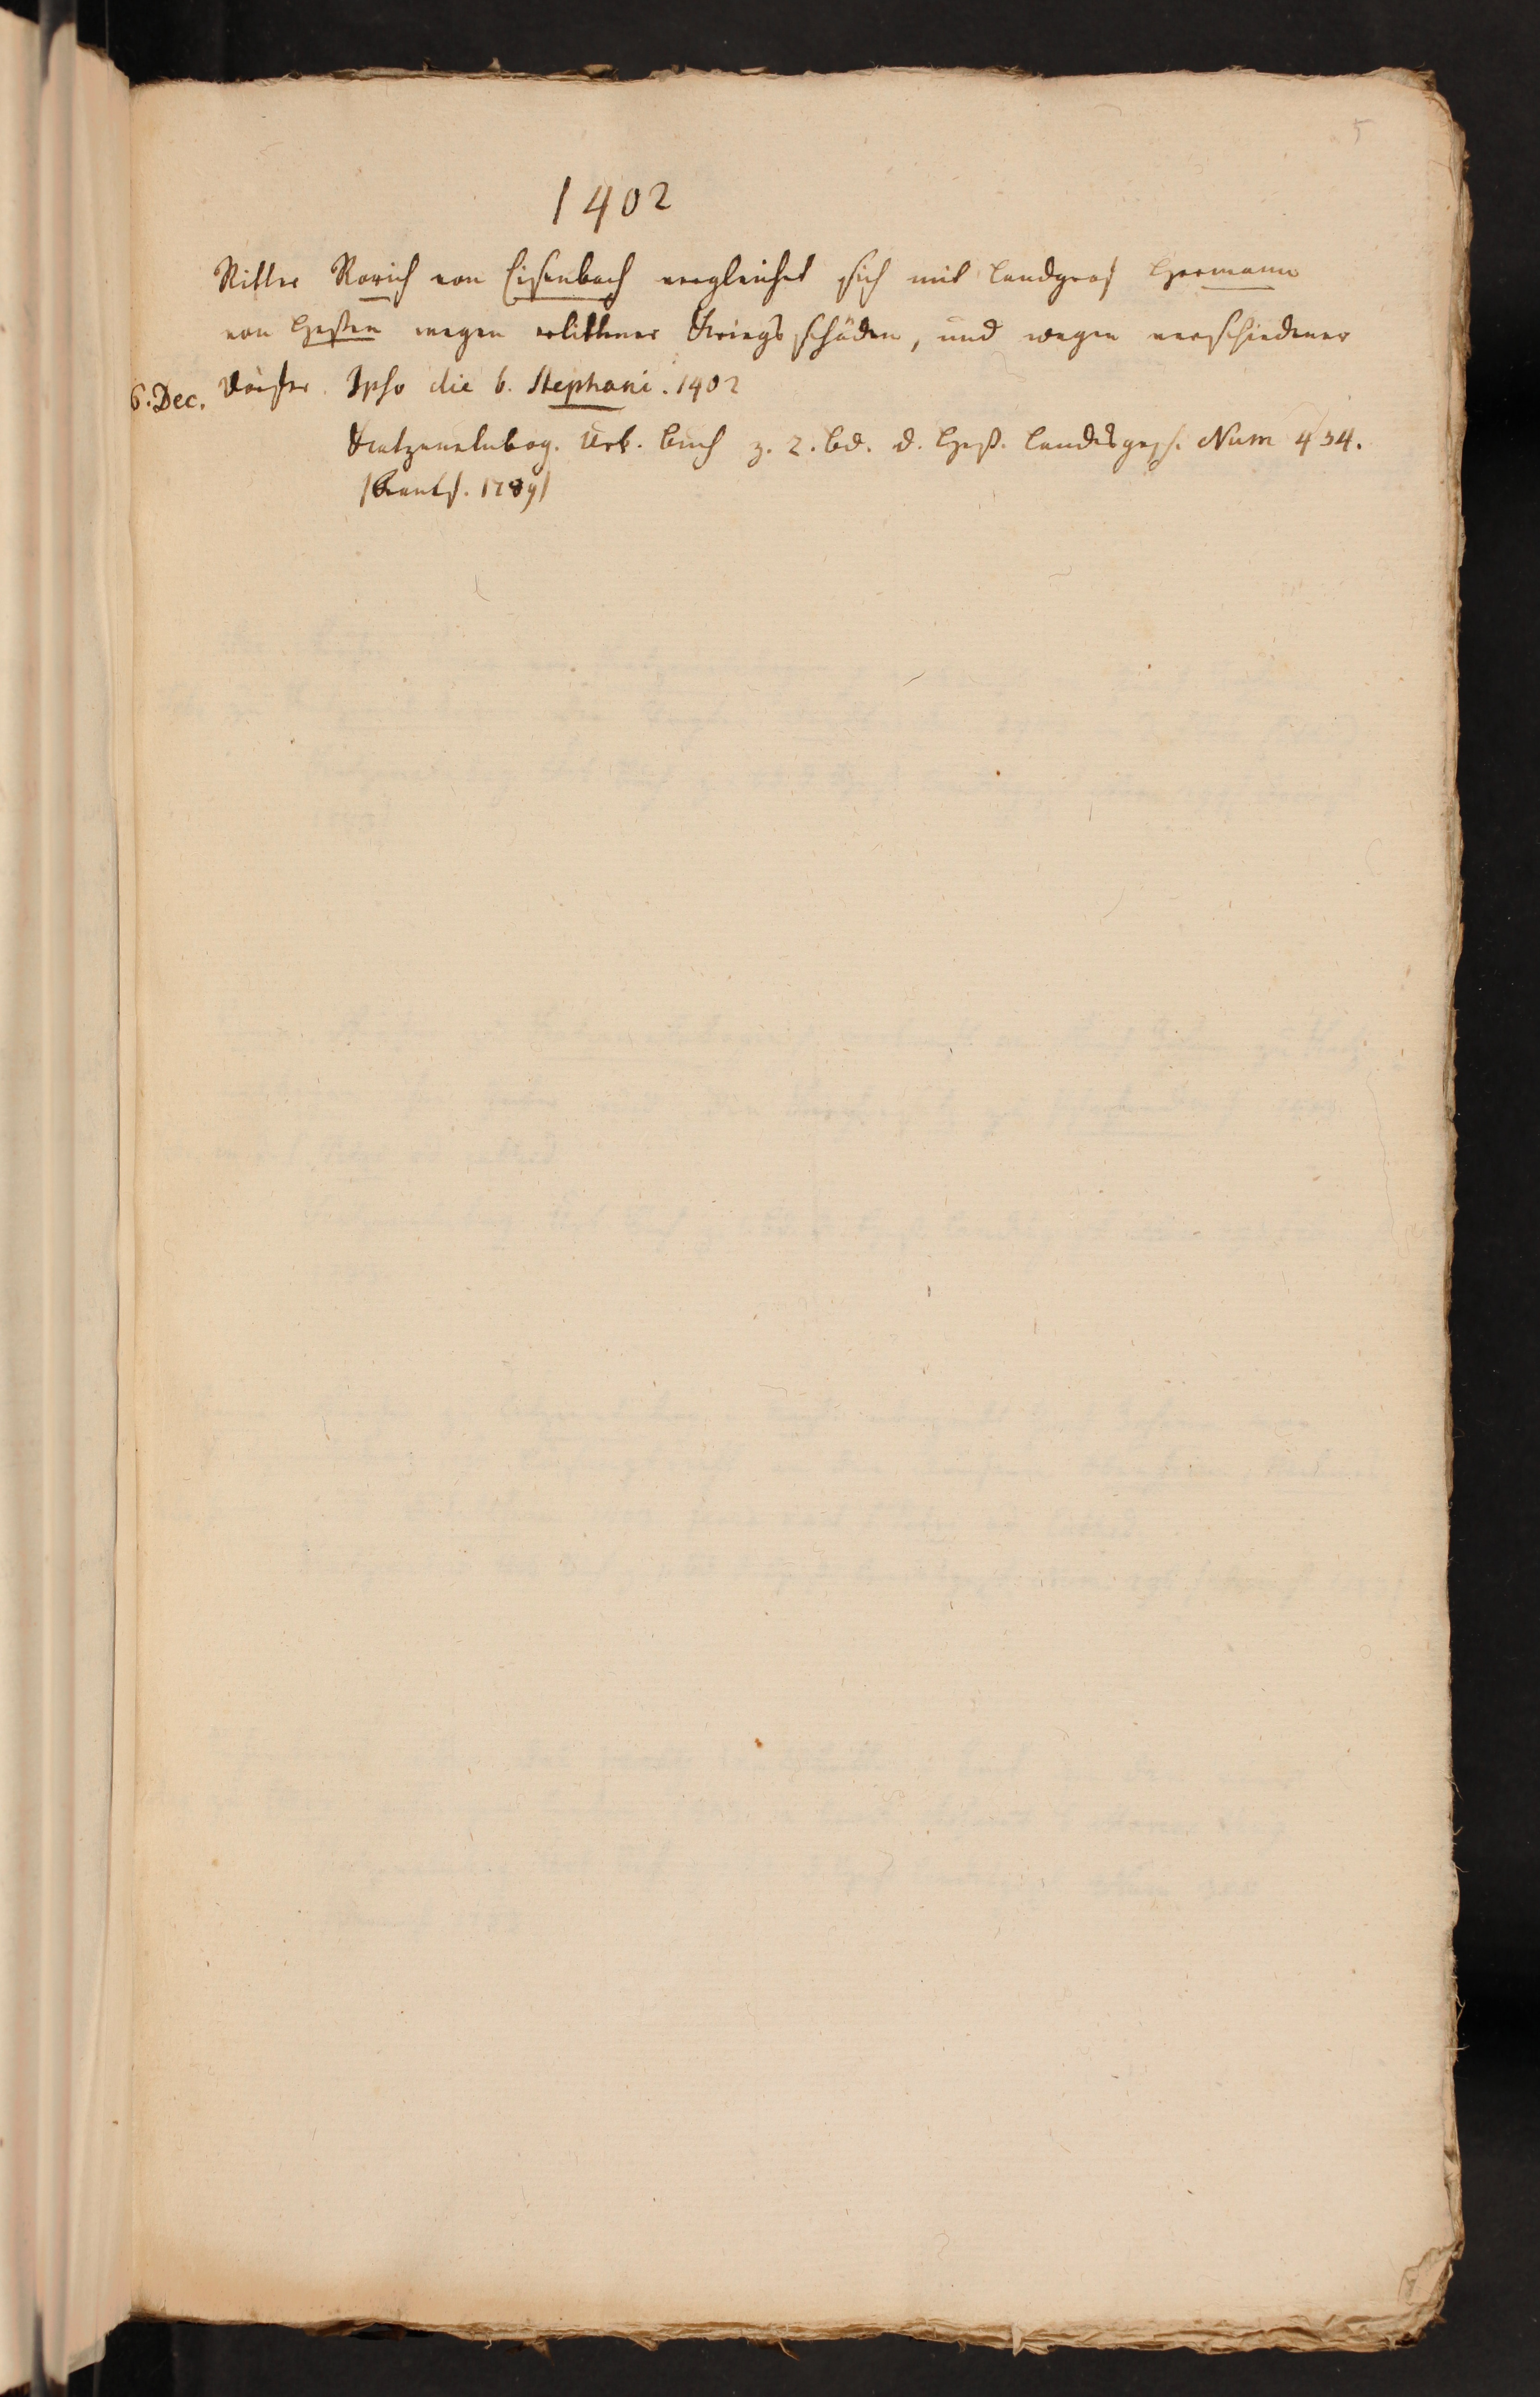 5
1402
Ritter Rorich von Eisenbach vergleichet sich mit Landgraf Hermann
von Hessen wegen erlittener Kriegsschäden, und wegen verschiedener
6. Dec. Dörfer. Ipso die b. Stephani. 1402
Katzenelnbog. Urk. Buch z. 2. Bd. d. Heß. Landesgesch. Num 434.